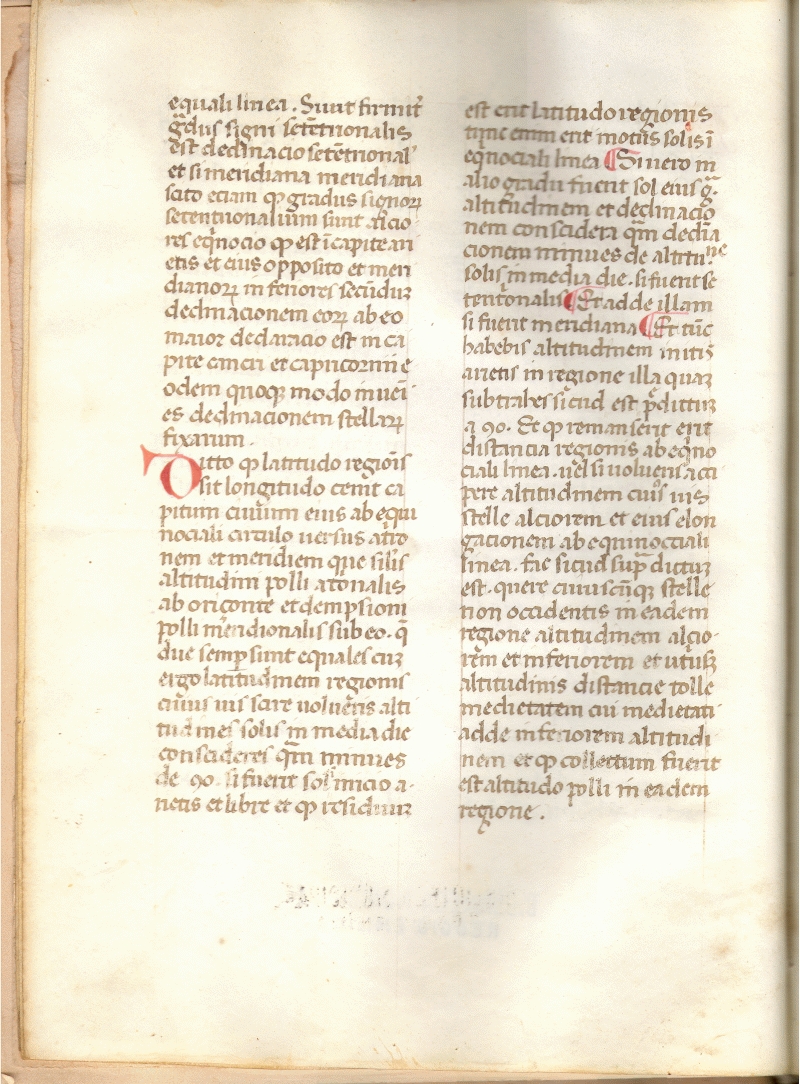 equali linea . Sunt firmit̃
g̃dus signi setẽtrionalis
est declinacio setẽtrional'
et si meridiana meridiana
scito eciam qꝫ gradus signoꝝ
setentrionalium sunt
res eq̃nocio qꝫ est ĩ capite ari
etis et eius opposito et meri
dianoꝝ inferiores secũduꝫ
declinacionem eoꝝ ab eo
maior declaracio est in ca
pite cancri et capricornii e
odem quoqꝫ modo inueĩ
es declinacionem stellaꝝ
fixarum .
Dicto qꝫ latitudo regiõis
sit longitudo cenit ca
pitum ciuium eius ab equi
nociali circulo versus
nem et meridiem que
altitudini polli
ab oriçonte et dempsioni
polli meridionalis sub eo . q̃
due semp̱ sunt equales cuꝫ
ergo latitudinem regionis
uis scire uolueris alti
tudines solis in media die
consideres q̃m minues
de 90 . si fuerit sol inicio a-
rietis et libre et qꝫ residuuꝫ
est erit latitudo regionis
tunc enim erit motus solis ĩ
eq̃nociali linea ¶ Si uero in
alio gradu fuerit sol eius g̃.
altitudinem et declinacio
nem considera q̃m declĩa
cionem minues de altitu
solis in media die . si fuerit se
tentrionalis ¶ Et adde illam
si fuerit meridiana ¶ Et tũc
habebis altitudinem initii
arietis in regione illa quaꝫ
subtrahes sicud est p̃dittuꝫ
a 90 . Et qꝫ remanserit erit
distancia regionis ab eq̃no
ciali linea . uel si uolueris acci
pere altitudinem cuiꝰ uis
stelle alciorem et eius elon
gacionem ab equinocciali
linea . fac sicud sup̃ dictuꝫ
est . quere cuiuscũqꝫ stelle
non occidentis in eadem
regione altitudinem alcio-
rẽm et inferiorem et utiusqꝫ
altitudinis distancie tolle
medietatem cui medietati
adde inferiorem altitudi
nem et qꝫ collectum fuerit
est altitudo polli in eadem
regione .